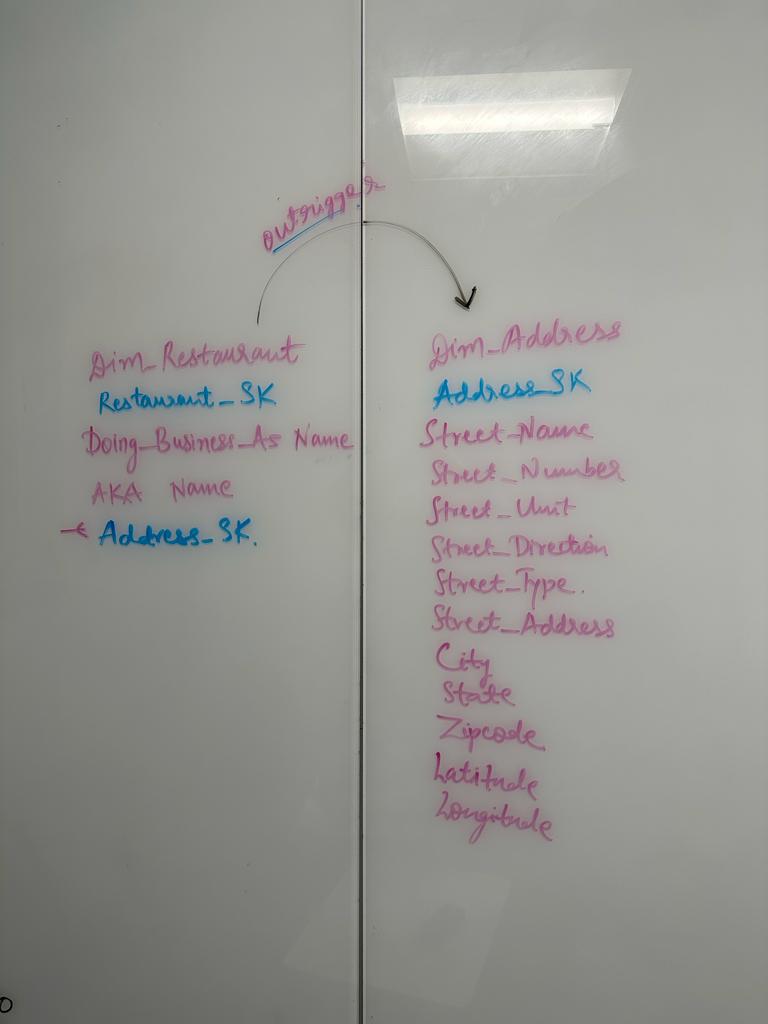 outrigger
Dim_Restaurant
Restaurant_SK
Doing_Business_As Name
AKA Name
Address_SK.
Dim_Address
Address_SK
Street_Name
Street_Number
Street_Unit
Street_Direction
Street_Type.
Street_Address
City
State
Zipcode
Latitude
Longitude